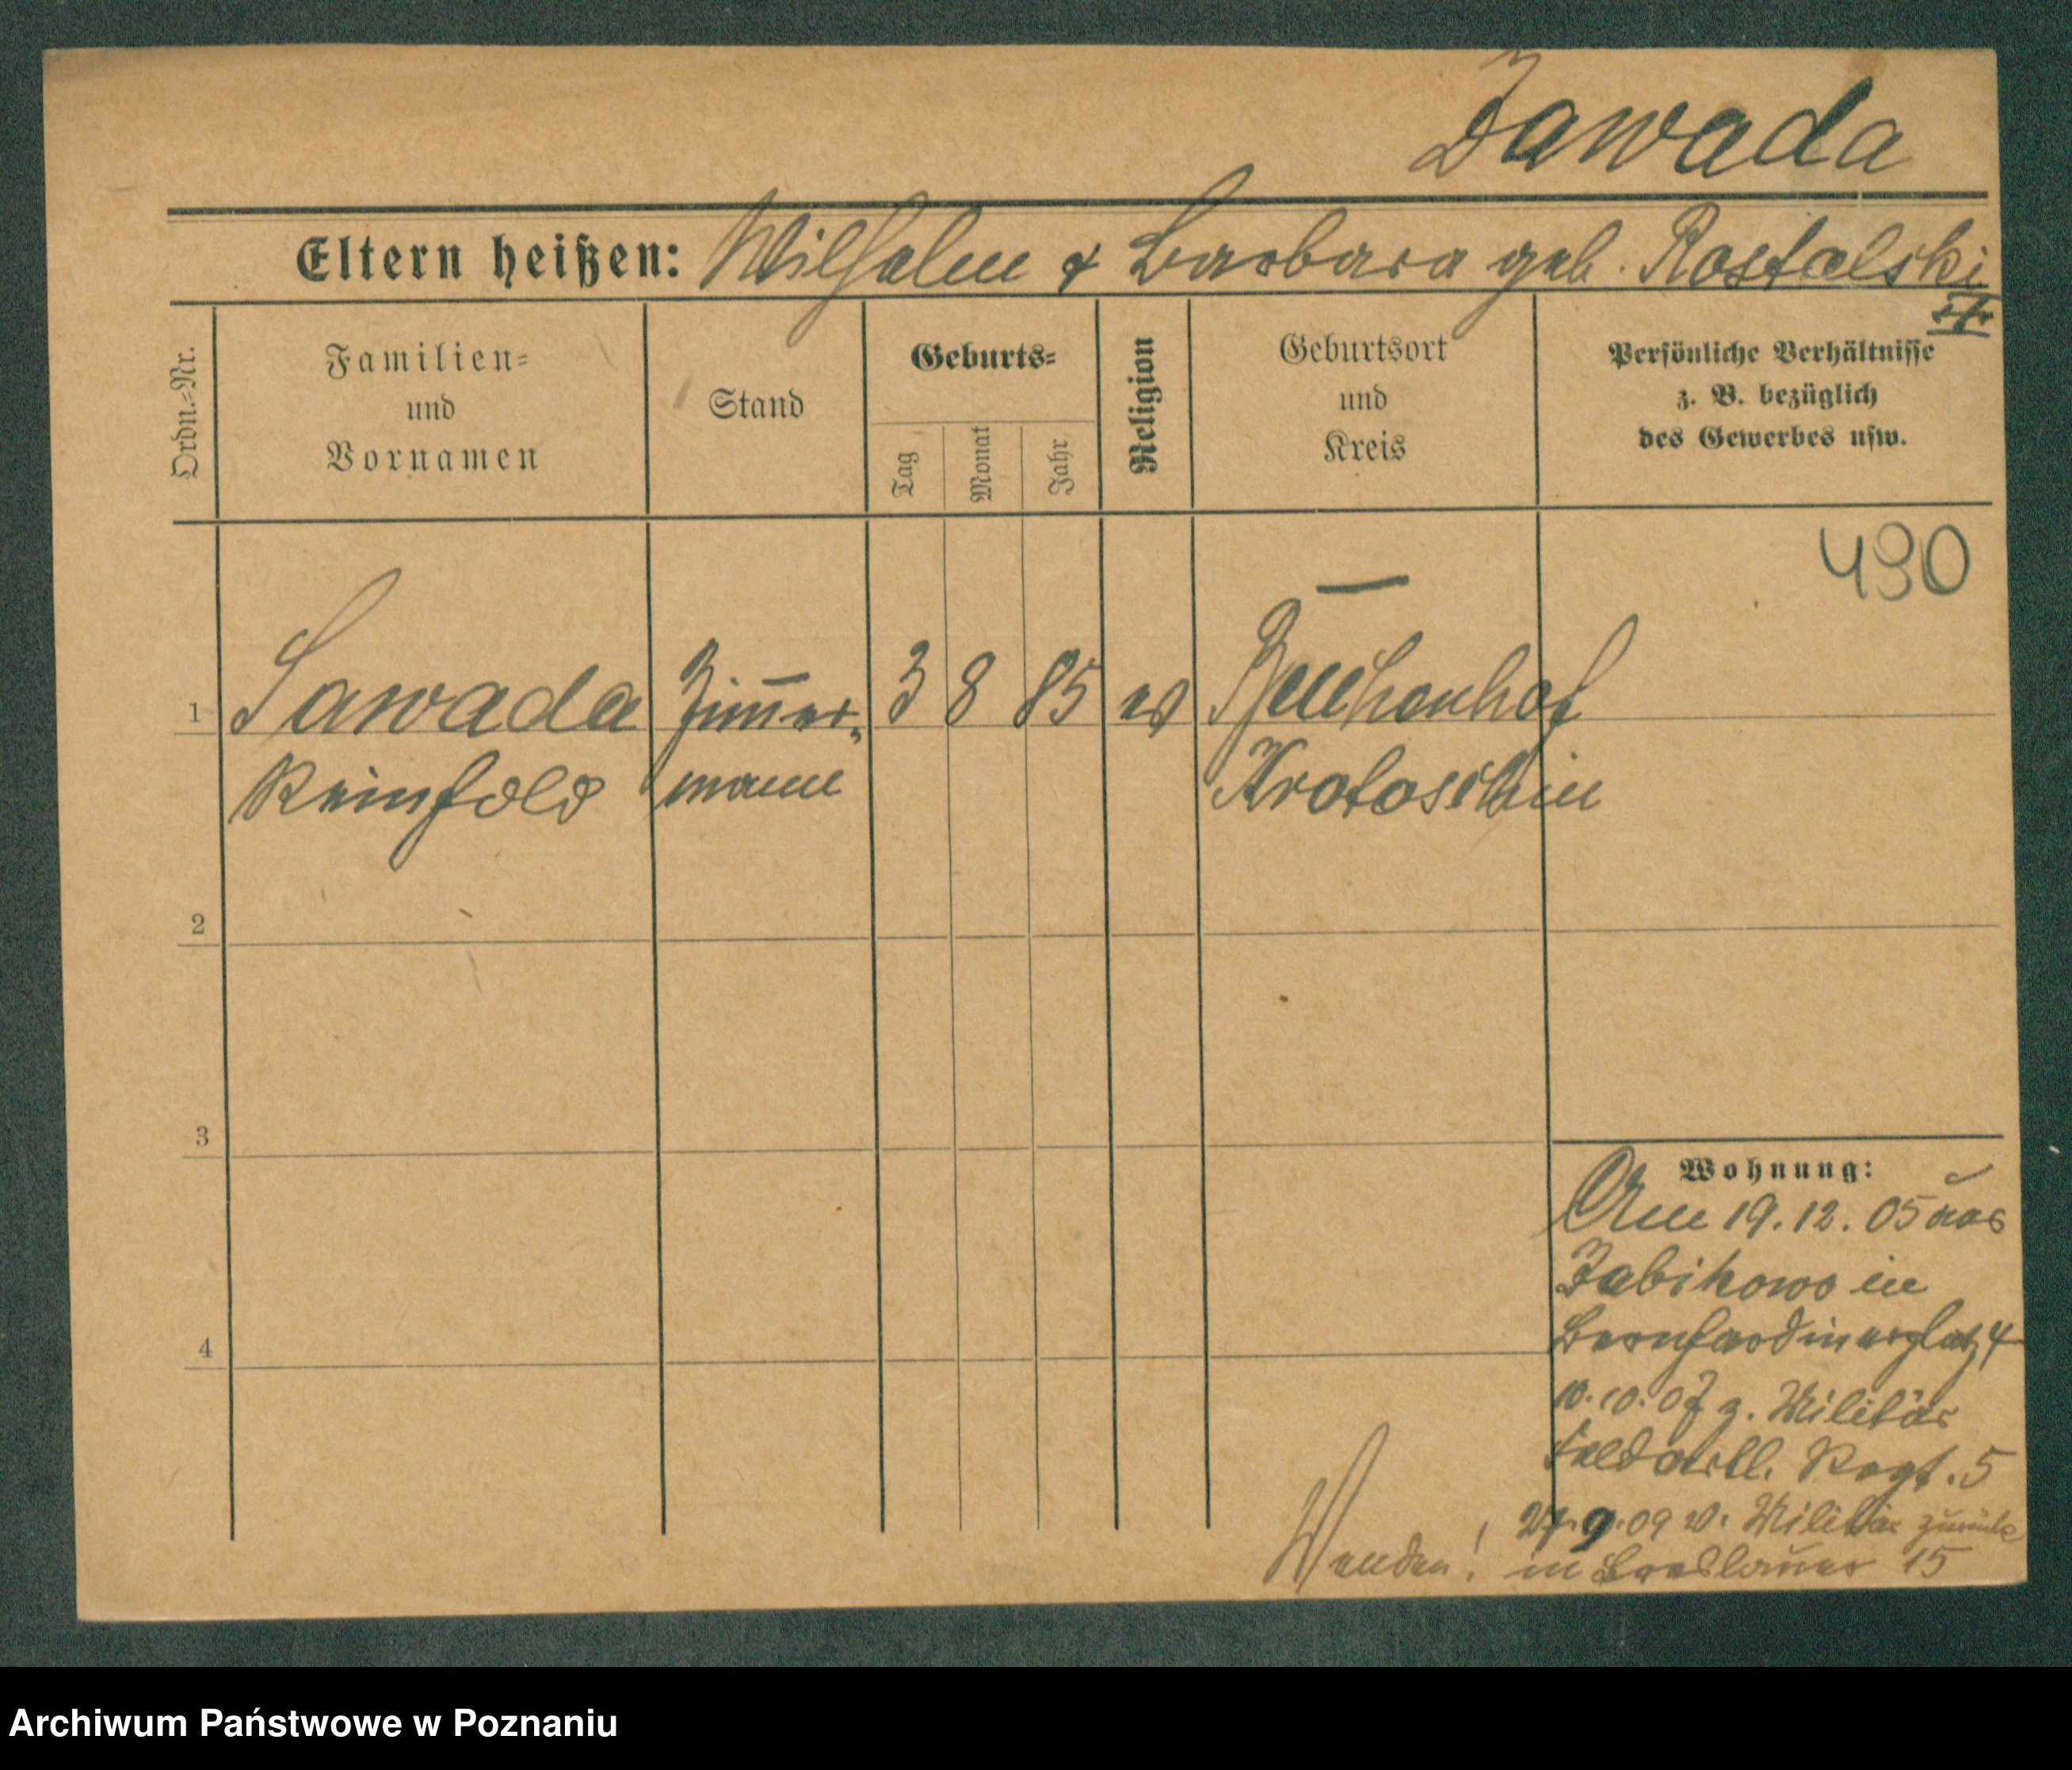 Zawada
Eltern heißen: Wilhelm & Barbara geb. Rostalski
Ordn.-Nr.
Familien-
und
Vornamen
Stand
Geburts-
Tag
Monat
Jahr
Religion
Geburtsort
und
Kreis
Persönliche Verhältnisse
z. B. bezüglich
des Gewerbes usw.
490
1 Sawada Zimmer- 3 8 85 ev
Reinhold mann Krotoschin
2
3
4
Wohnung:
Am 19.12.05 aus
Zabikowo in
Bernhardinerplatz 4
10.10.07 z. Militär
Feldartll. Regt. 5
27.9.09 v. Militär zurück
in Breslauer 15
Wenden!
Archiwum Państwowe w Poznaniu